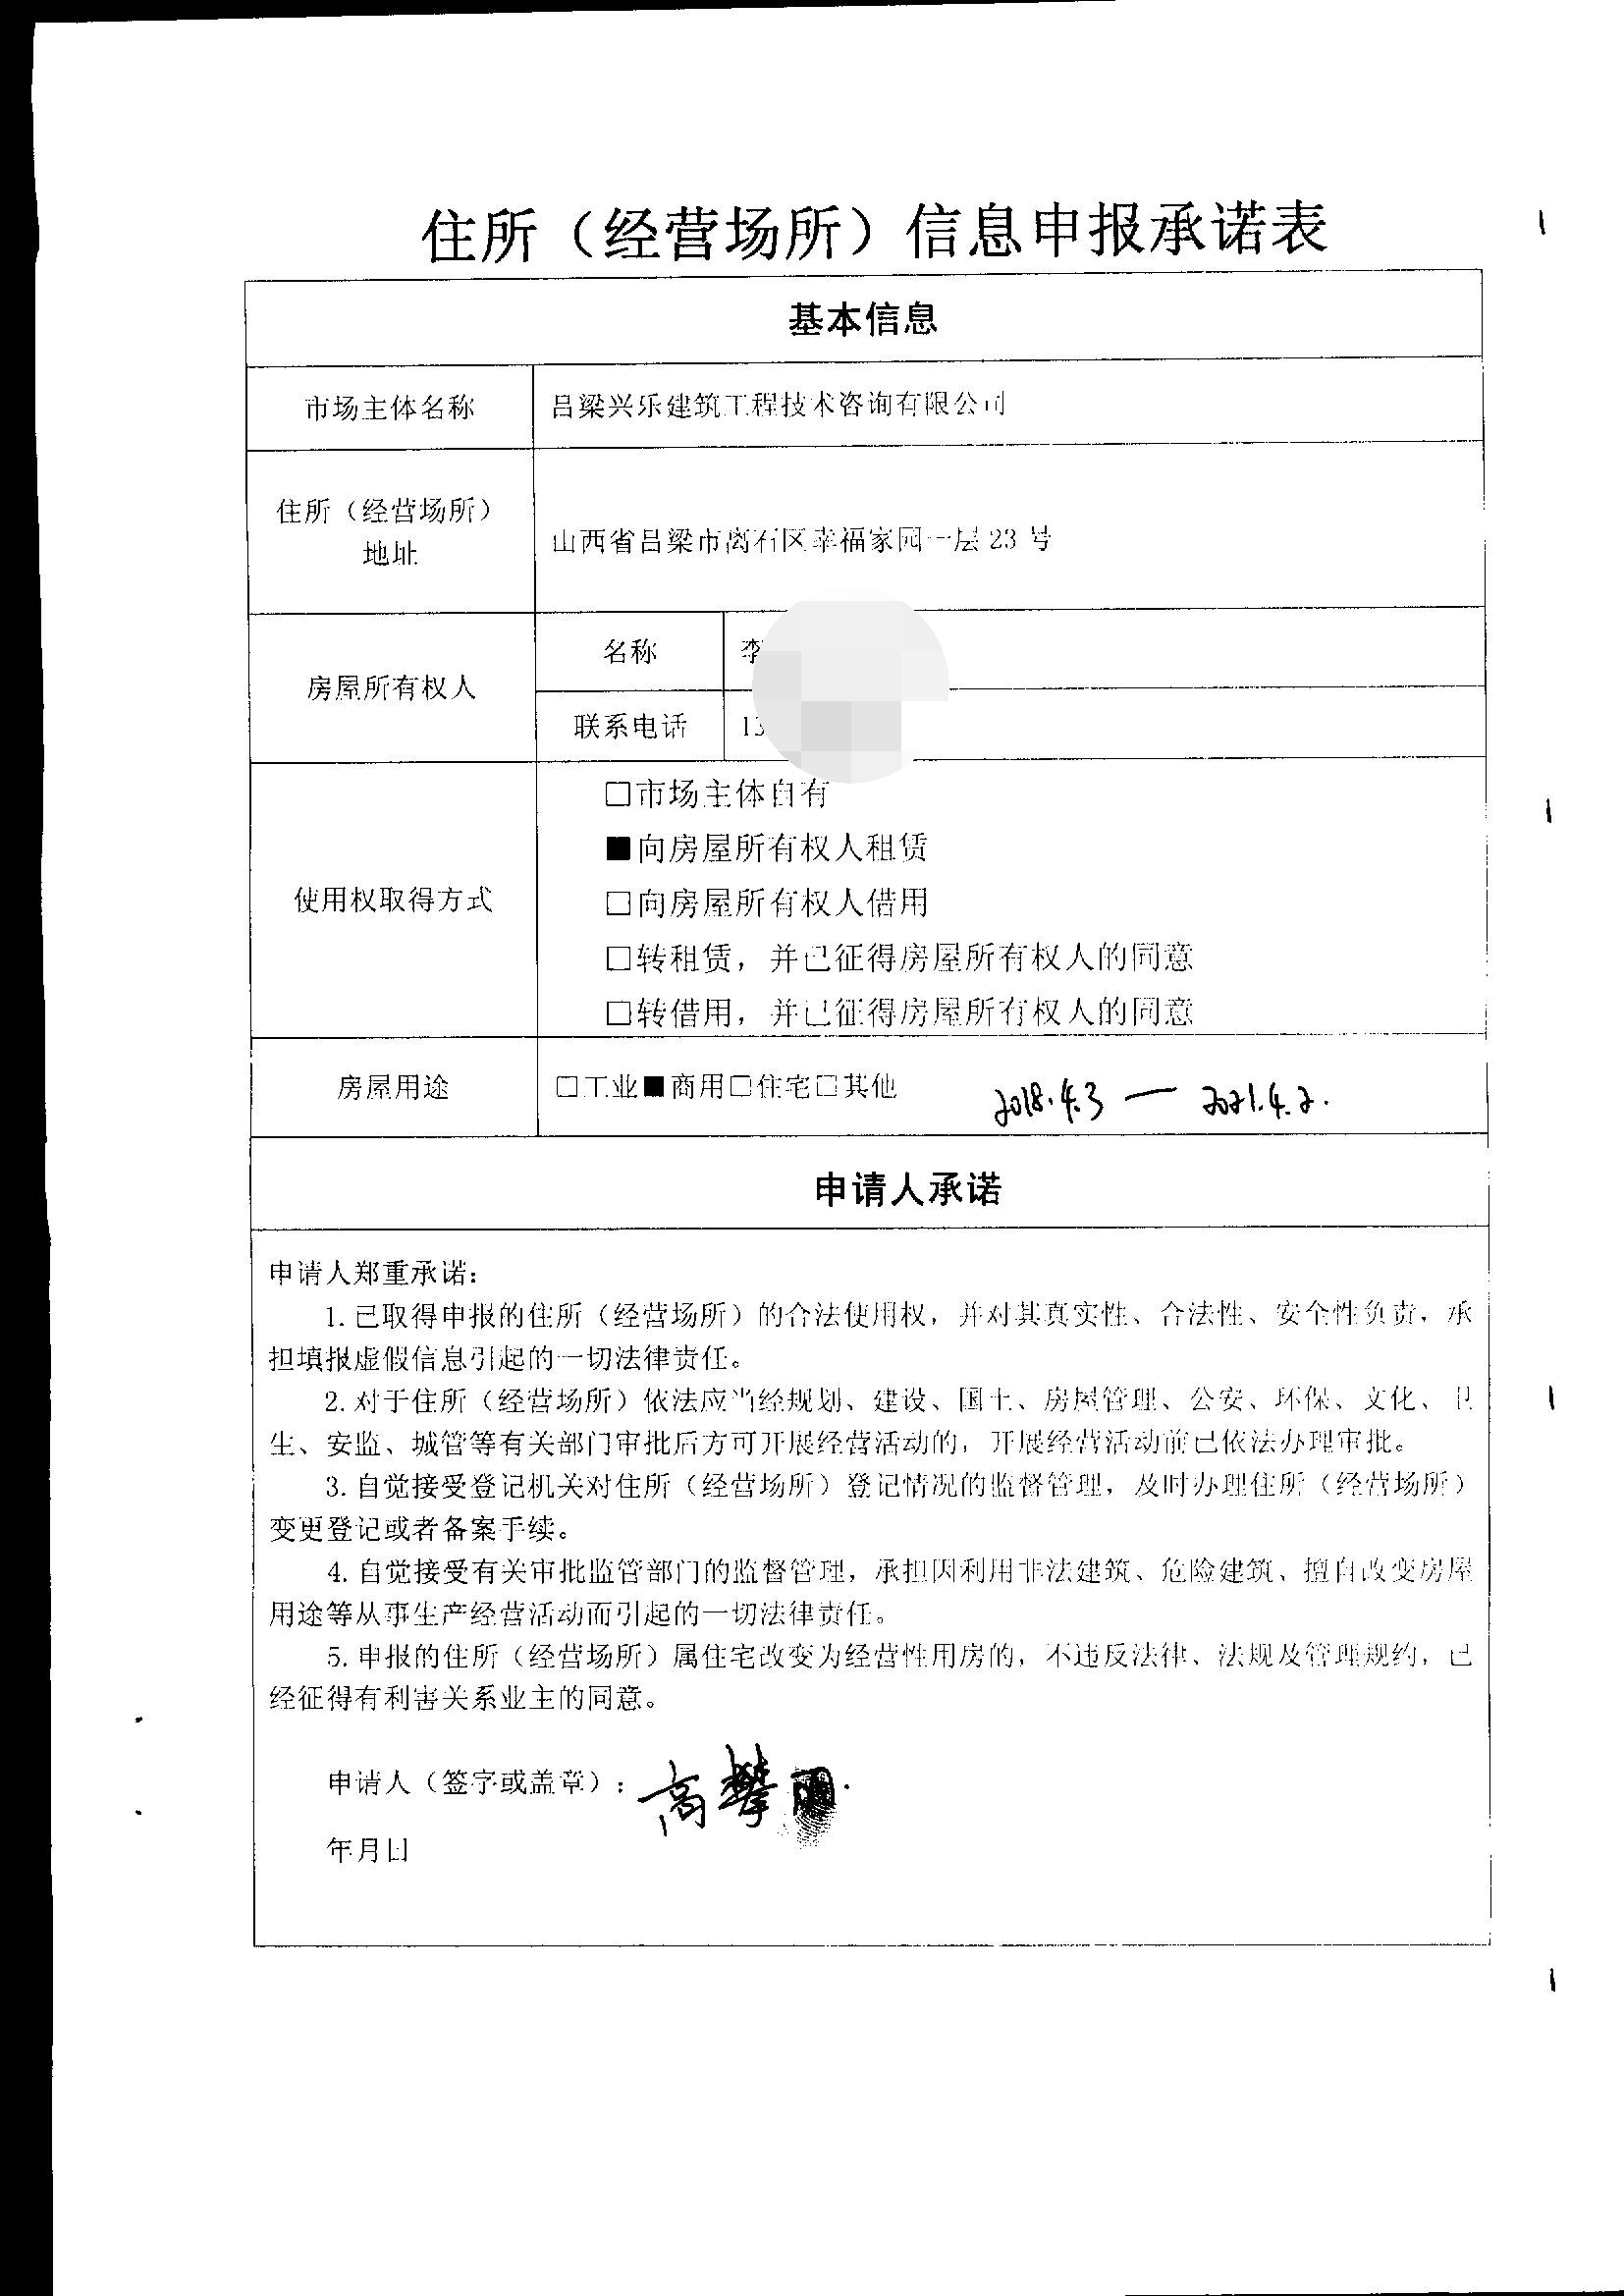 住所（经营场所）信息申报承诺表
基本信息
市场主体名称
吕梁兴乐建筑工程技术咨询有限公司
住所（经营场所）
地址
山西省吕梁市离石区幸福家园一层 23 号
房屋所有权人
名称
李
联系电话
13
使用权取得方式
□市场主体自有
■向房屋所有权人租赁
□向房屋所有权人借用
□转租赁，并已征得房屋所有权人的同意
□转借用，并已征得房屋所有权人的同意
房屋用途
□工业■商用□住宅□其他
2018.4.3 — 2021.4.2.
申请人承诺
申请人郑重承诺：
1. 已取得申报的住所（经营场所）的合法使用权，并对其真实性、合法性、安全性负责，承
担填报虚假信息引起的一切法律责任。
2. 对于住所（经营场所）依法应当经规划、建设、国土、房屋管理、公安、环保、文化、卫
生、安监、城管等有关部门审批后方可开展经营活动的，开展经营活动前已依法办理审批。
3. 自觉接受登记机关对住所（经营场所）登记情况的监督管理，及时办理住所（经营场所）
变更登记或者备案手续。
4. 自觉接受有关审批监管部门的监督管理，承担因利用非法建筑、危险建筑、擅自改变房屋
用途等从事生产经营活动而引起的一切法律责任。
5. 申报的住所（经营场所）属住宅改变为经营性用房的，不违反法律、法规及管理规约，已
经征得有利害关系业主的同意。
申请人（签字或盖章）：高攀
年月日